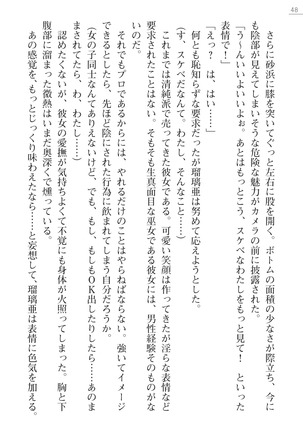 48
さらに砂浜に膝を突いてぐっと左右に股を開く。ボトムの面積の少なさが際立ち、今に
も陰部が見えてしまいそうな危険な魅力がカメラの前に披露された。
「う～んいいよいいよぉ。あとはもっとこう、スケベなわたしをもっと見て! といった
表情で!」
「えっ? は、はい……」
何とも恥知らずな要求だったが瑠璃亜は努めて応えようとした。
(す、スケベだなんて。わたし、そんなこと……)
これまでは清純派で売ってきた彼女である。可愛い笑顔は作ってきたが淫らな表情など
要求されたことはない。そもそも生真面目な巫女である彼女には、男性経験そのものがな
い。
それでもプロであるからには、やれるだけのことはやらねばならない。強いてイメージ
できるとしたら、先ほど陰にされた行為に飲まれてしまう自分だろうか。
(女の子同士なんてありえないけど、でも、もし、もしもOK出したりしたら……あのま
まされてたら、わ、わたし……)
認めたくないが、彼女の愛撫が気持ちよくて不覚にも身体が火照ってしまった。胸と下
腹部に溜まった微熱はいまだ奥深くで燻っている。
あの感覚を、もっとじっくり味わえたなら……と妄想して、瑠璃亜は表情に色気を加える。